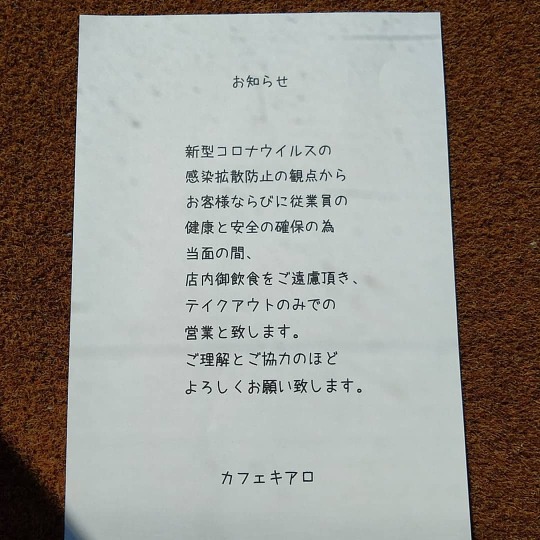 お知らせ
新型コロナウイルスの
感染拡散防止の観点から
お客様ならびに従業員の
健康と安全の確保の為
当面の間、
店内御飲食をご遠慮頂き、
テイクアウトのみでの
営業と致します。
ご理解とご協力のほど
よろしくお願い致します。
カフェキアロ